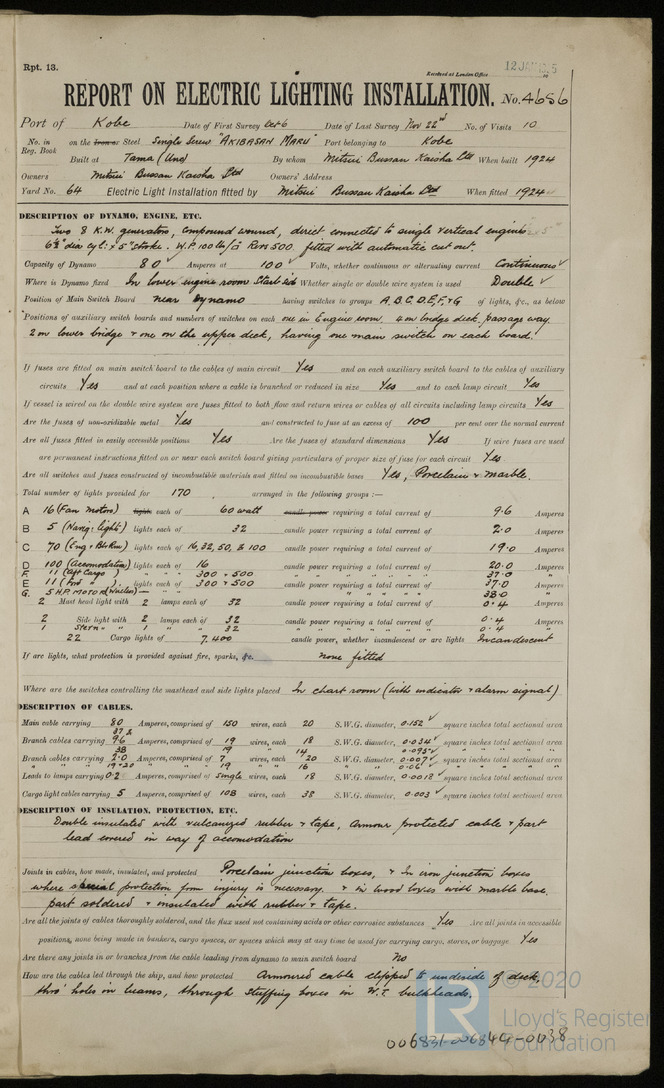 Rpt. 13.
Received at London Office 12 JAN
REPORT ON ELECTRIC LIGHTING INSTALLATION. No. 4656
Port of Kobe Date of First Survey Oct 6 Date of Last Survey Nov 22nd No. of Visits 10
No. in Reg. Book on the Iron or Steel Single Screw "AKIBASAN MARU" Port belonging to Kobe
Built at Tama (Uno) By whom Mitsui Bussan Kaisha Ltd When built 1924
Owners Mitsui Bussan Kaisha Ltd Owners' Address
Yard No. 64 Electric Light Installation fitted by Mitsui Bussan Kaisha Ltd When fitted 1924
DESCRIPTION OF DYNAMO, ENGINE, ETC.
Two 8 K.W. generators, compound wound, direct connected to single vertical engine
6½" dia cyl: × 5" stroke. W.P. 100 lbs/□" Revs 500 fitted with automatic cut out.
Capacity of Dynamo 80 Amperes at 100 Volts, whether continuous or alternating current Continuous
Where is Dynamo fixed In lower engine room Starb side Whether single or double wire system is used Double
Position of Main Switch Board near Dynamo having switches to groups A, B, C, D, E, F, & G of lights, &c., as below
Positions of auxiliary switch boards and numbers of switches on each one in Engine room, 4 on bridge deck passage way.
2 on lower bridge & one on the upper deck, having one main switch on each board.
If fuses are fitted on main switch board to the cables of main circuit Yes and on each auxiliary switch board to the cables of auxiliary
circuits Yes and at each position where a cable is branched or reduced in size Yes and to each lamp circuit Yes
If vessel is wired on the double wire system are fuses fitted to both flow and return wires or cables of all circuits including lamp circuits Yes
Are the fuses of non-oxidizable metal Yes and constructed to fuse at an excess of 100 per cent over the normal current
Are all fuses fitted in easily accessible positions Yes Are the fuses of standard dimensions Yes If wire fuses are used
are permanent instructions fitted on or near each switch board giving particulars of proper size of fuse for each circuit Yes
Are all switches and fuses constructed of incombustible materials and fitted on incombustible bases Yes, Porcelain & marble.
Total number of lights provided for 170 arranged in the following groups :—
A 16 (Fan Motors) lights each of 60 watt candle power requiring a total current of 9.6 Amperes
B 5 (Navig: light) lights each of 32 candle power requiring a total current of 2.0 Amperes
C 70 (Eng & Blr Rm) lights each of 16, 32, 50, & 100 candle power requiring a total current of 19.0 Amperes
D 100 (Accomodation) lights each of 16 candle power requiring a total current of 20.0 Amperes
F. 11 (Aft Cargo) " " " 300 & 500 " " " " " " 37.0 "
E 11 (Fwd " ) lights each of 300 & 500 candle power requiring a total current of 37.0 Amperes
G. 5 H.P. MOTOR (Wireless) — " " 38.0 "
2 Mast head light with 2 lamps each of 32 candle power requiring a total current of 0.4 Amperes
2 Side light with 2 lamps each of 32 candle power requiring a total current of 0.4 Amperes
1 Stern " " 1 " " " 32 " " " " " " 0.4 "
22 Cargo lights of 7,400 candle power, whether incandescent or arc lights Incandescent
If arc lights, what protection is provided against fire, sparks, &c. none fitted
Where are the switches controlling the masthead and side lights placed In chart room (with indicator & alarm signal)
DESCRIPTION OF CABLES.
Main cable carrying 80 Amperes, comprised of 150 wires, each 20 S.W.G. diameter, 0.152 square inches total sectional area
Branch cables carrying 37 & 9.6 Amperes, comprised of 19 wires, each 18 S.W.G. diameter, 0.034 square inches total sectional area
38 19 14 0.095 " " " "
Branch cables carrying 2.0 Amperes, comprised of 7 wires, each 20 S.W.G. diameter, 0.007 square inches total sectional area
" " " 19 & 20 " " " 19 " " 16 " " 0.06 " " " "
Leads to lamps carrying 0.2 Amperes, comprised of Single wires, each 18 S.W.G. diameter, 0.0018 square inches total sectional area
Cargo light cables carrying 5 Amperes, comprised of 108 wires, each 38 S.W.G. diameter, 0.003 square inches total sectional area
DESCRIPTION OF INSULATION, PROTECTION, ETC.
Double insulated with vulcanized rubber & tape, Armour protected cable & part
lead covered in way of accomodation
Joints in cables, how made, insulated, and protected Porcelain junction boxes, & In iron junction boxes
where special protection from injury is necessary. & in wood boxes with marble base.
part soldered & insulated with rubber & tape.
Are all the joints of cables thoroughly soldered, and the flux used not containing acids or other corrosive substances Yes Are all joints in accessible
positions, none being made in bunkers, cargo spaces, or spaces which may at any time be used for carrying cargo, stores, or baggage Yes
Are there any joints in or branches from the cable leading from dynamo to main switch board No
How are the cables led through the ship, and how protected Armoured cable clipped to underside of deck,
thro' holes in beams, through stuffing boxes in W.T. bulkheads.
© 2020
LR Lloyd's Register
Foundation
006831-006840-0038